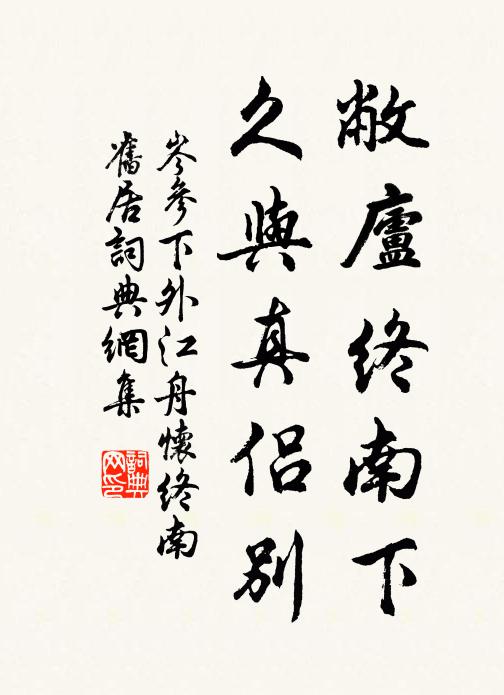 敝廬終南下
久與真侶別
岑參下外江舟懷終南
舊居詞典網集
詞典网印